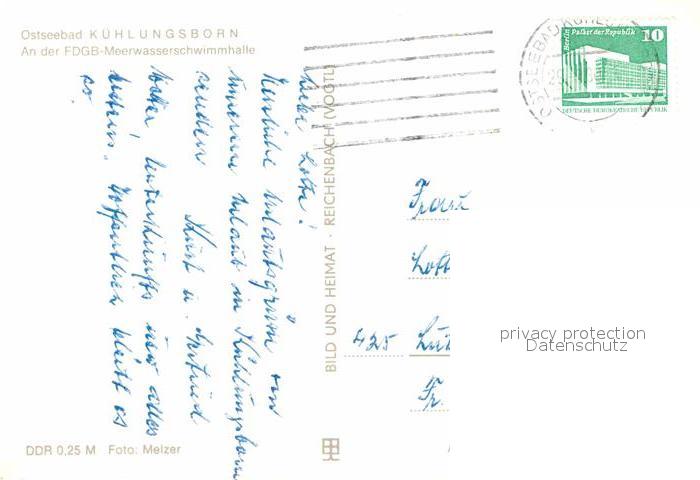 Ostseebad KÜHLUNGSBORN
An der FDGB-Meerwasserschwimmhalle
Liebe Lotte!
Herzliche Urlaubsgrüße von
unserem Urlaub in Kühlungsborn
senden Kurt u. Gertrud
Wetter Unterkunft u. alles
bestens. Hoffentlich bleibt es
so.
BILD UND HEIMAT · REICHENBACH (VOGTL)
OSTSEEBAD KÜHL
Berlin Palast der Republik 10
DEUTSCHE DEMOKRATISCHE REPUBLIK
Frau
Lott
425
Fr.
privacy protection
Datenschutz
DDR 0,25 M Foto: Melzer